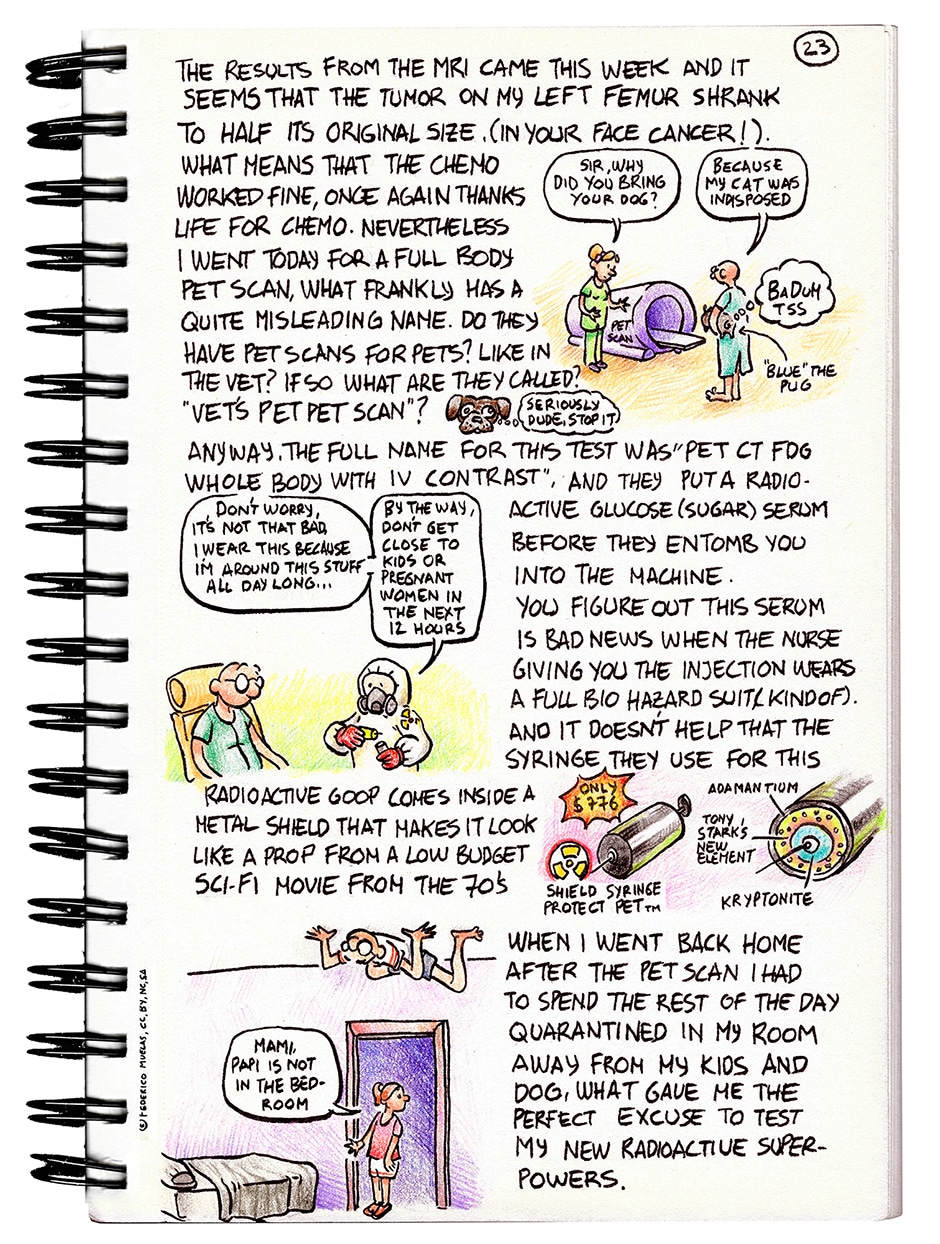 23
THE RESULTS FROM THE MRI CAME THIS WEEK AND IT
SEEMS THAT THE TUMOR ON MY LEFT FEMUR SHRANK
TO HALF ITS ORIGINAL SIZE. (IN YOUR FACE CANCER!).
WHAT MEANS THAT THE CHEMO
WORKED FINE, ONCE AGAIN THANKS
LIFE FOR CHEMO. NEVERTHELESS
I WENT TODAY FOR A FULL BODY
PET SCAN, WHAT FRANKLY HAS A
QUITE MISLEADING NAME. DO THEY
HAVE PET SCANS FOR PETS? LIKE IN
THE VET? IF SO WHAT ARE THEY CALLED?
"VET'S PET PET SCAN"?
SERIOUSLY
DUDE, STOP IT
SIR, WHY
DID YOU BRING
YOUR DOG?
BECAUSE
MY CAT WAS
INDISPOSED
BADUM
TSS
PET
SCAN
"BLUE" THE
PUG
ANYWAY. THE FULL NAME FOR THIS TEST WAS "PET CT FDG
WHOLE BODY WITH IV CONTRAST", AND THEY PUT A RADIO-
ACTIVE GLUCOSE (SUGAR) SERUM
BEFORE THEY ENTOMB YOU
INTO THE MACHINE.
YOU FIGURE OUT THIS SERUM
IS BAD NEWS WHEN THE NURSE
GIVING YOU THE INJECTION WEARS
A FULL BIO HAZARD SUIT (KIND OF).
AND IT DOESN'T HELP THAT THE
SYRINGE THEY USE FOR THIS
DON'T WORRY,
IT'S NOT THAT BAD,
I WEAR THIS BECAUSE
I'M AROUND THIS STUFF
ALL DAY LONG...
BY THE WAY,
DON'T GET
CLOSE TO
KIDS OR
PREGNANT
WOMEN IN
THE NEXT
12 HOURS
RADIOACTIVE GOOP COMES INSIDE A
METAL SHIELD THAT MAKES IT LOOK
LIKE A PROP FROM A LOW BUDGET
SCI-FI MOVIE FROM THE 70'S
ONLY
$776
SHIELD SYRINGE
PROTECT PET TM
ADAMANTIUM
TONY
STARK'S
NEW
ELEMENT
KRYPTONITE
WHEN I WENT BACK HOME
AFTER THE PET SCAN I HAD
TO SPEND THE REST OF THE DAY
QUARANTINED IN MY ROOM
AWAY FROM MY KIDS AND
DOG, WHAT GAVE ME THE
PERFECT EXCUSE TO TEST
MY NEW RADIOACTIVE SUPER-
POWERS.
MAMI,
PAPI IS NOT
IN THE BED-
ROOM
© FEDERICO MUELAS, CC, BY, NC, SA